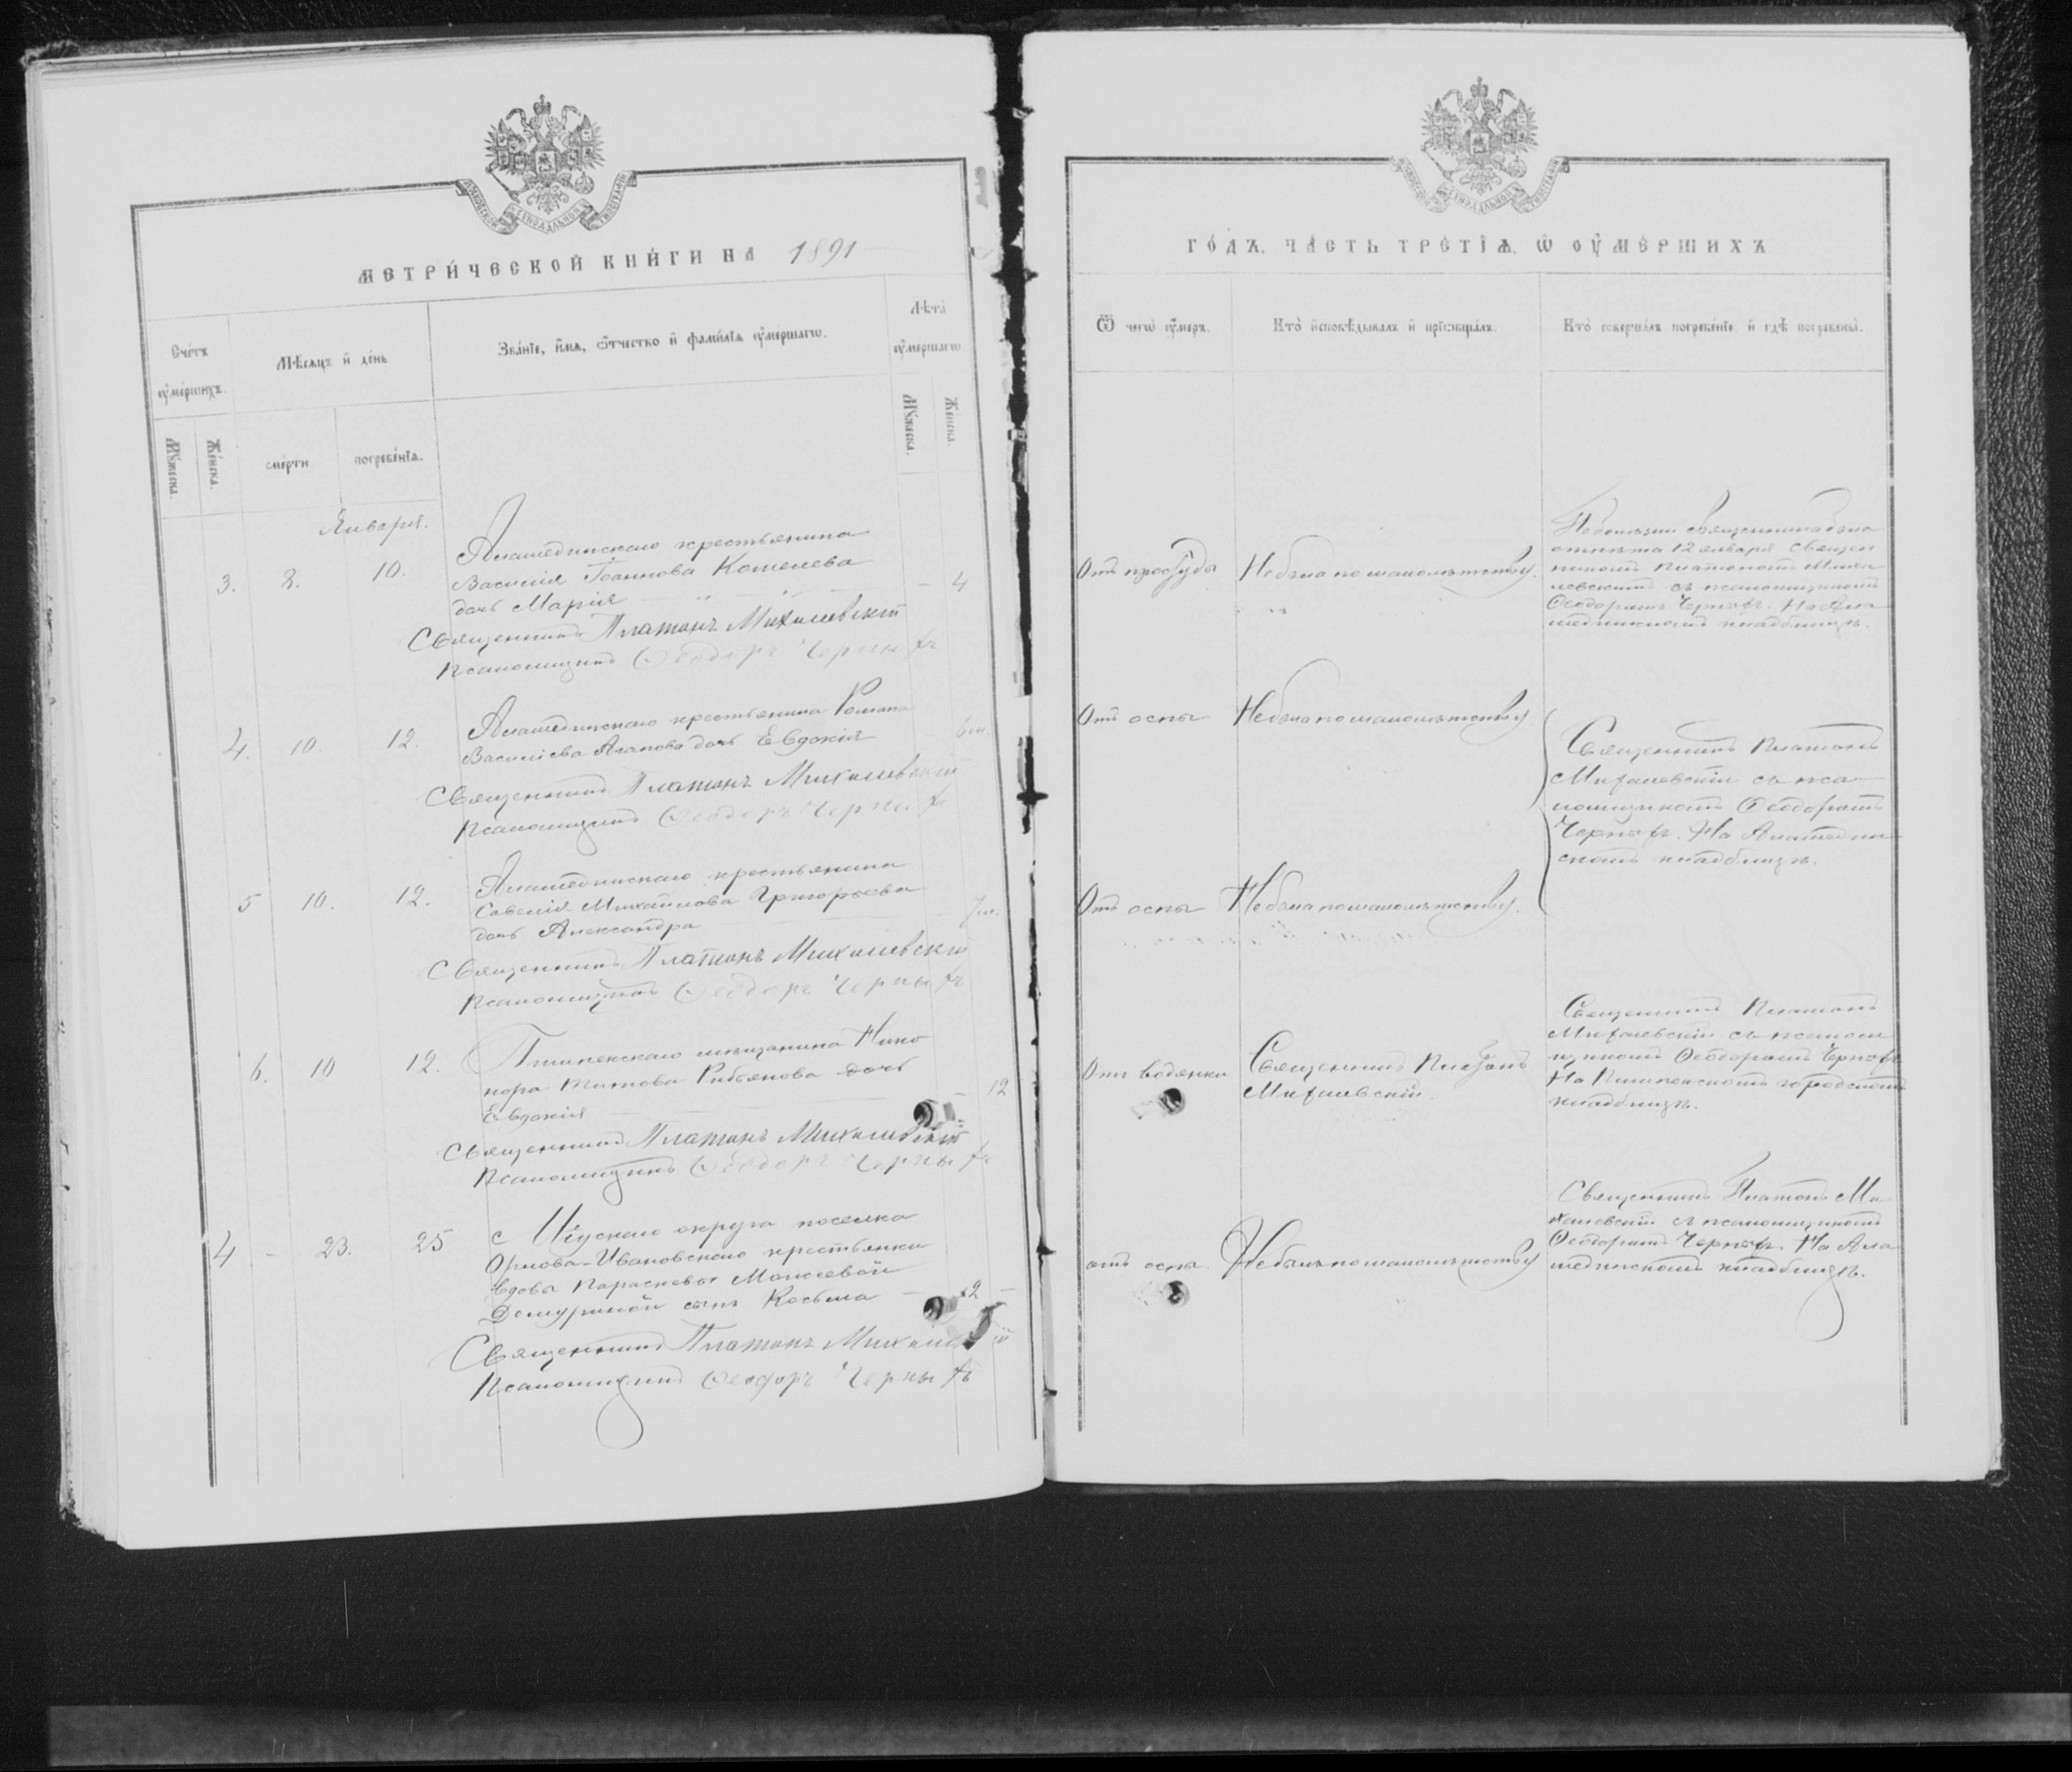 МОСКОВСКОЙ СѴНОДАЛЬНОЙ ТИПОГРАФІИ
МЕТРИ́ЧЕСКОЙ КНИ́ГИ НА 1891
Сче́тъ ᲂу҆ме́ршихъ.
Мѣ́сѧцъ и҆ де́нь
Зва́нїе, и҆́мѧ, ѻ҆́тчество и҆ фами́лїѧ ᲂу҆ме́ршагѡ.
Лѣ́та ᲂу҆ме́ршагѡ.
Мꙋ́жеска.
Же́нска.
сме́рти
погребе́нїѧ.
Мꙋ́жеска.
Же́нска.
Января.
3. 8. 10. Алашединскаго крестьянина
Василія Іоаннова Кошелева
дочь Марія — 4
Священникъ Платонъ Михалевскій
Псаломщикъ Ѳеодоръ Черныхъ
4. 10. 12. Алашединскаго крестьянина Романа
Василіева Агапова дочь Евдокія 6 м.
Священникъ Платонъ Михалевскій
Псаломщикъ Ѳеодоръ Черныхъ
5 10. 12. Алашединскаго крестьянина
Савелія Михайлова Григорьева
дочь Александра 7 м.
Священникъ Платонъ Михалевскій
Псаломщикъ Ѳеодоръ Черныхъ
6. 10 12. мѣщанина Нико
нора Титова дочь
Евдокія 12
Священникъ Платонъ Михалевскій
Псаломщикъ Ѳеодоръ Черныхъ
4 – 23. 25 округа поселка
Ивановскаго крестьянки
вдовы Парасковьи Моисеевой
сынъ Косьма — 2 –
Священникъ Платонъ
Псаломщикъ Ѳеодоръ Черныхъ
ГО́ДЪ. ЧА́СТЬ ТРЕ́ТЇѦ. Ѡ҆ ОУ҆МЕ́РШИХЪ
Ѿ чегѡ̀ ᲂу҆́меръ.
Кто̀ и҆сповѣ́дывалъ и҆ прїѡбща́лъ.
Кто̀ соверша́лъ погребе́нїе, и҆ гдѣ̀ погребены̀.
Отъ простуды Не была по малолѣтству.
По болѣзни священника была
отпѣта 12 января священ
никомъ Платономъ Миха
левскимъ съ псаломщикомъ
Ѳеодоромъ Черныхъ. На Ала
шединскомъ кладбищѣ.
Отъ оспы Не была по малолѣтству
Священникъ Платонъ
Михалевскій съ пса
ломщикомъ Ѳеодоромъ
Черныхъ. На Алашедин
скомъ кладбищѣ.
Отъ оспы Не была по малолѣтству.
Отъ водянки Священникъ Платонъ
Михалевскій.
Священникъ Платонъ
Михалевскій съ псалом
щикомъ Ѳеодоромъ Черныхъ
На городскомъ
кладбищѣ.
отъ оспы. Не былъ по малолѣтству
Священникъ Платонъ Ми
халевскій съ псаломщикомъ
Ѳеодоромъ Черныхъ. На Ала
шединскомъ кладбищѣ.